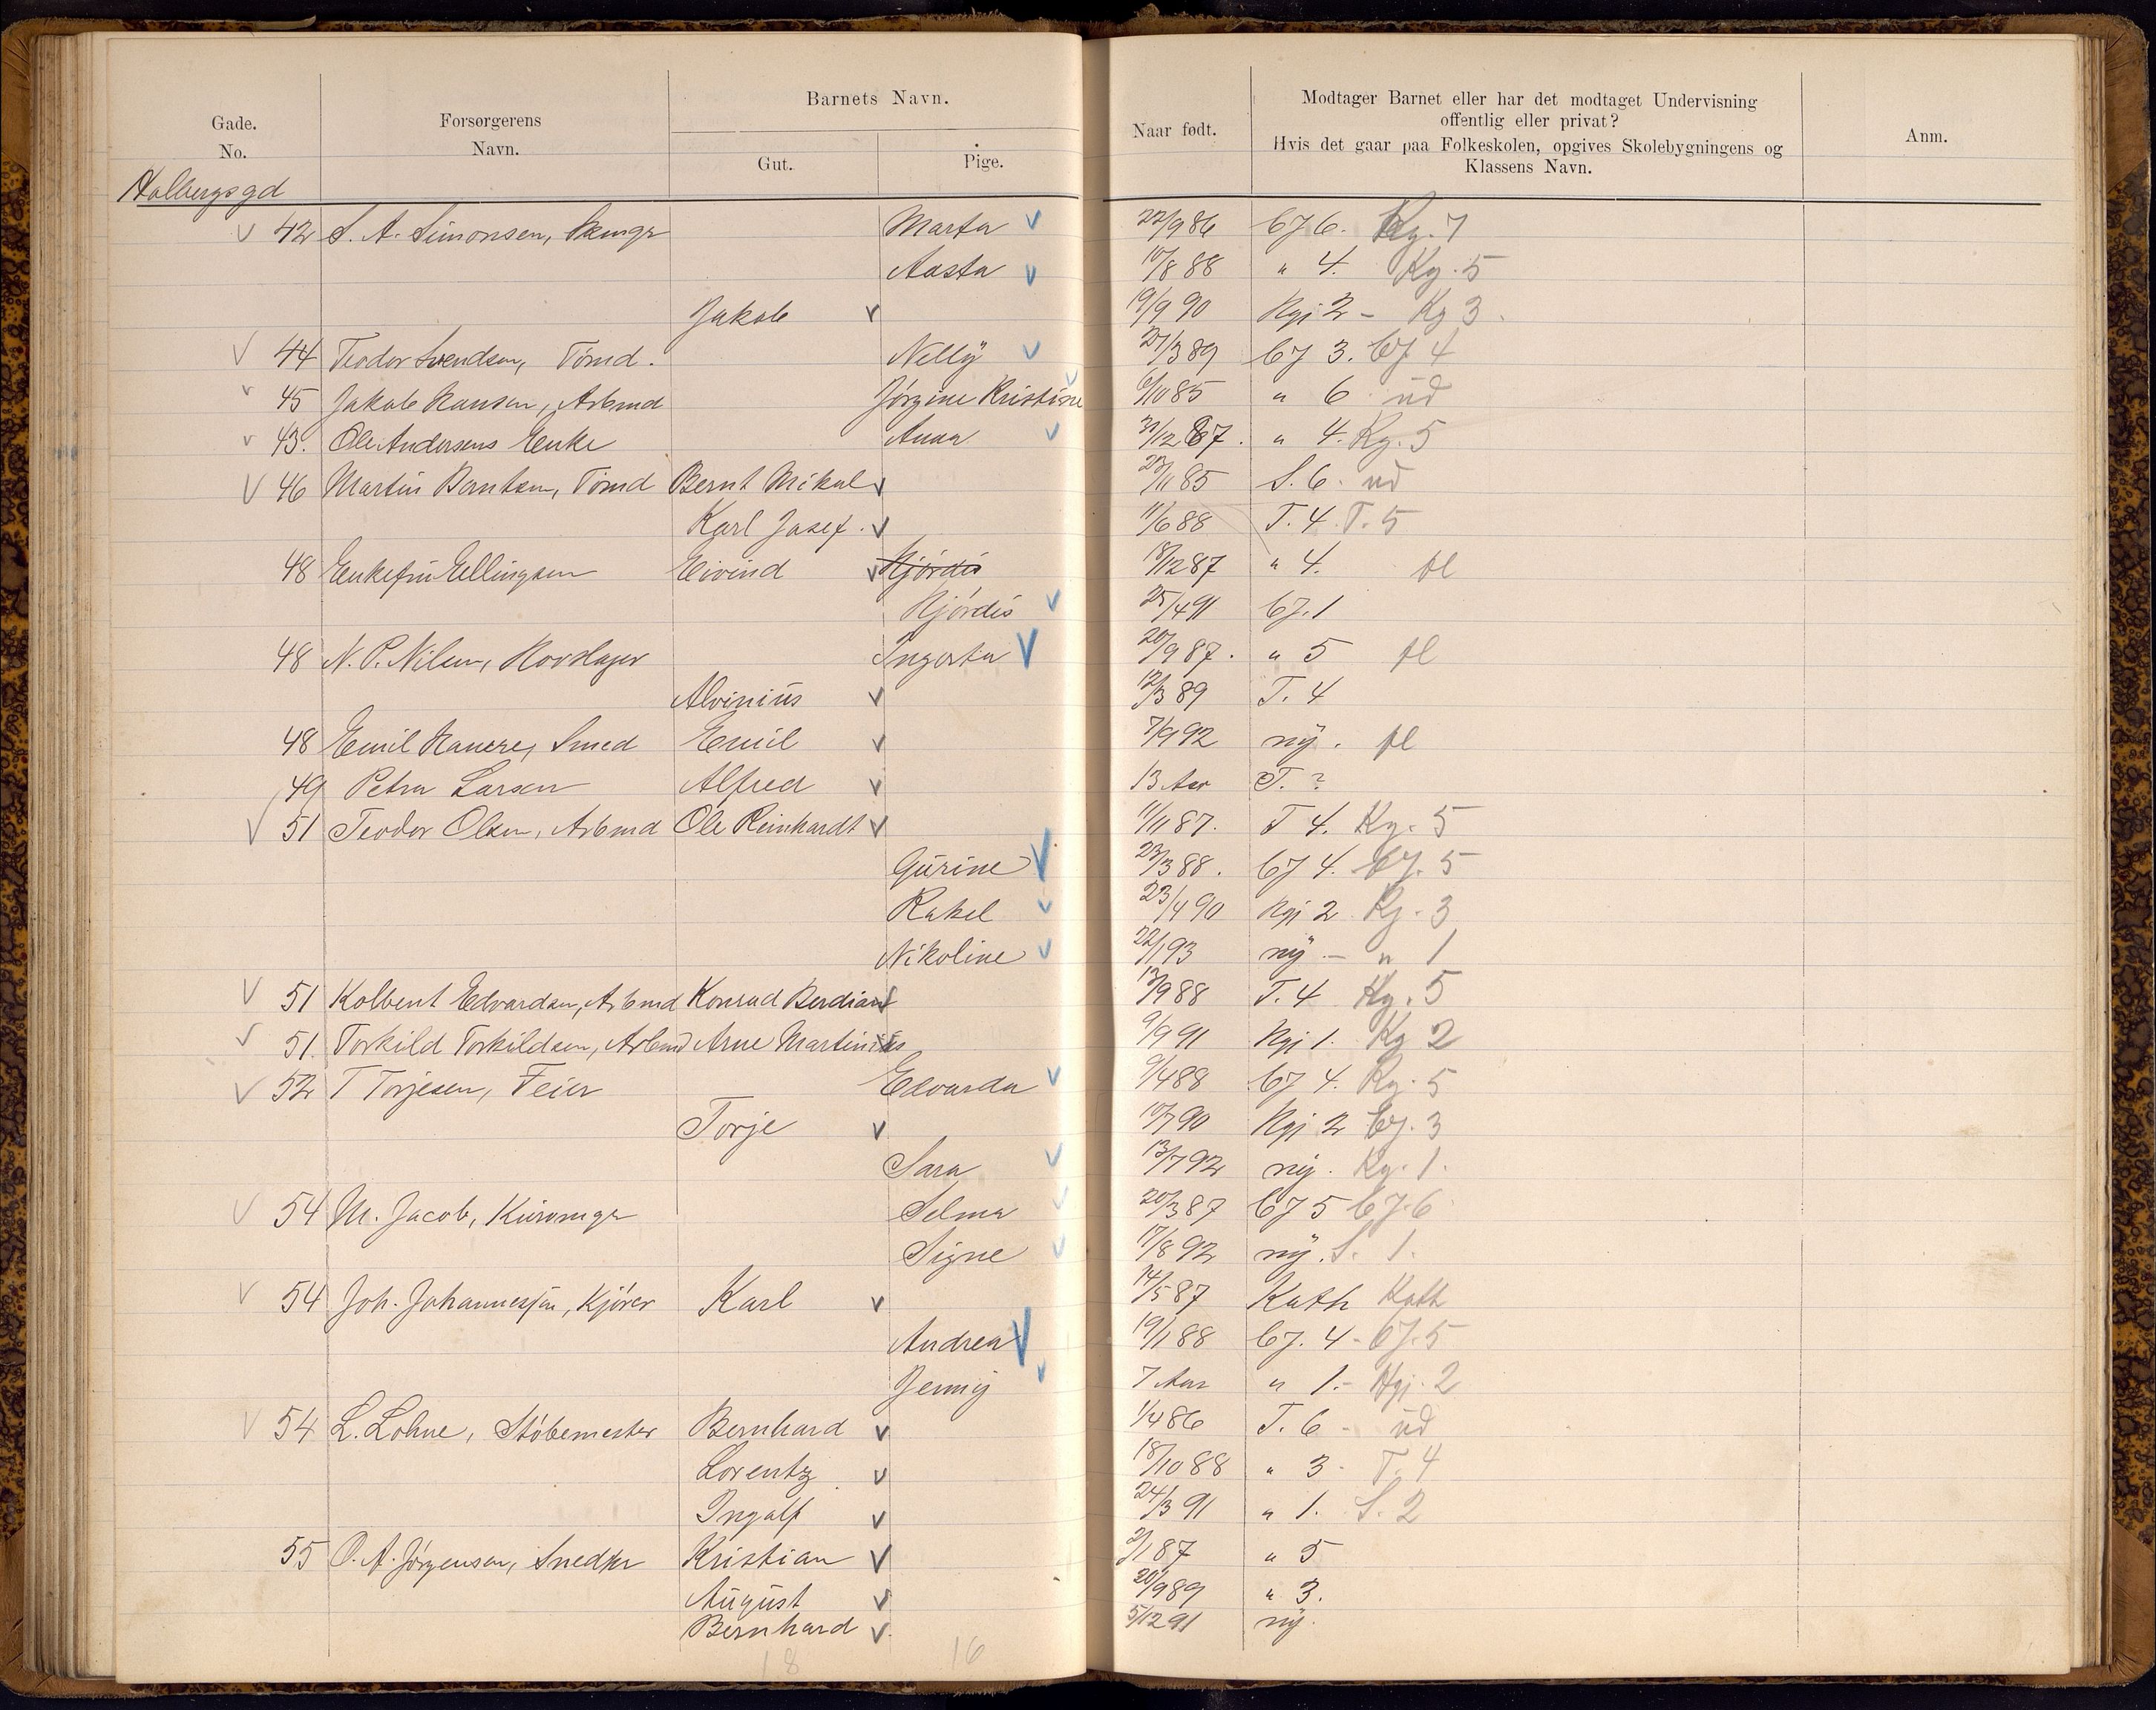 Barnets Navn.
Gade. No. Forsørgerens Navn. Gut. Pige. Naar født. Modtager Barnet eller har det modtaget Undervisning offentlig eller privat? Hvis det gaar paa Folkeskolen, opgives Skolebygningens og Klassens Navn. Anm.
Holbergsgd
42 S. A. Simonsen, Marta 22/9 86 6. Kg. 7
Aasta 10/8 88 " 4. Kg. 5
Jakob 19/9 90 Kgj 2 - Kg 3.
44 Teodor Svendsen, Tømd. Nelly 27/3 89 3. 4
45 Jakob Hansen, Arbmd Jørgine Kristine 6/10 85 " 6 ud
43. Ole Andersens Enke Anna 31/12 87. " 4. Kg. 5
46 Martin Berntsen, Tømd Bernt Mikal 27/11 85 S. 6. ud
Karl Josef. 11/6 88 T. 4. T. 5
48 Enkefru Ellingsen Eivind Hjørdis 18/12 87 " 4. fl
Hjørdis 25/4 91 1
48 N. P. Nilsen, Hovslager Ingerta 20/9 87. " 5 fl
Alvinius 12/3 89 T. 4
48 Emil Smed Emil 7/9 92 ny. fl
49 Petra Larsen Alfred 13 Aar T. ?
51 Teodor Olsen, Arbmd Ole Reinhardt 11/11 87. T 4. Kg. 5
Gurine 23/3 88. 4. 5
Rakel 23/4 90 Kgj 2 Kg. 3
Nikoline 22/1 93 ny - " 1
51 Kolbent Edvardsen, Arbmd Konrad Berdian 13/9 88 T. 4 Kg. 5
51. Torkild Torkildsen, Arbmd Arne Martinius 9/9 91 Kgj 1. Kg 2
52 T Torjesen, Feier Edvarda 9/4 88 4. Kg. 5
Torje 10/7 90 Kgj 2 3
Sara 13/7 92 ny. Kg. 1.
54 M. Jacob, Kurvmgr Selma 20/3 87 5 6
Signe 17/8 92 ny. S. 1.
54 Joh. Johannessen, Kjører Karl 14/5 87 Kath Kath
Andrea 19/1 88 4 - 5
Jenny 7 Aar " 1. - Kgj. 2
54 L. Lohne, Støbemester Bernhard 1/4 86 T. 6 - ud
Lorentz 18/10 88 " 3 - T. 4
Ingolf 24/3 91 " 1. S. 2
55 O. A. Jørgensen, Snedker Kristian 2/1 87 " 5
August 20/9 89 " 3.
Bernhard 5/12 91 ny.
18 16